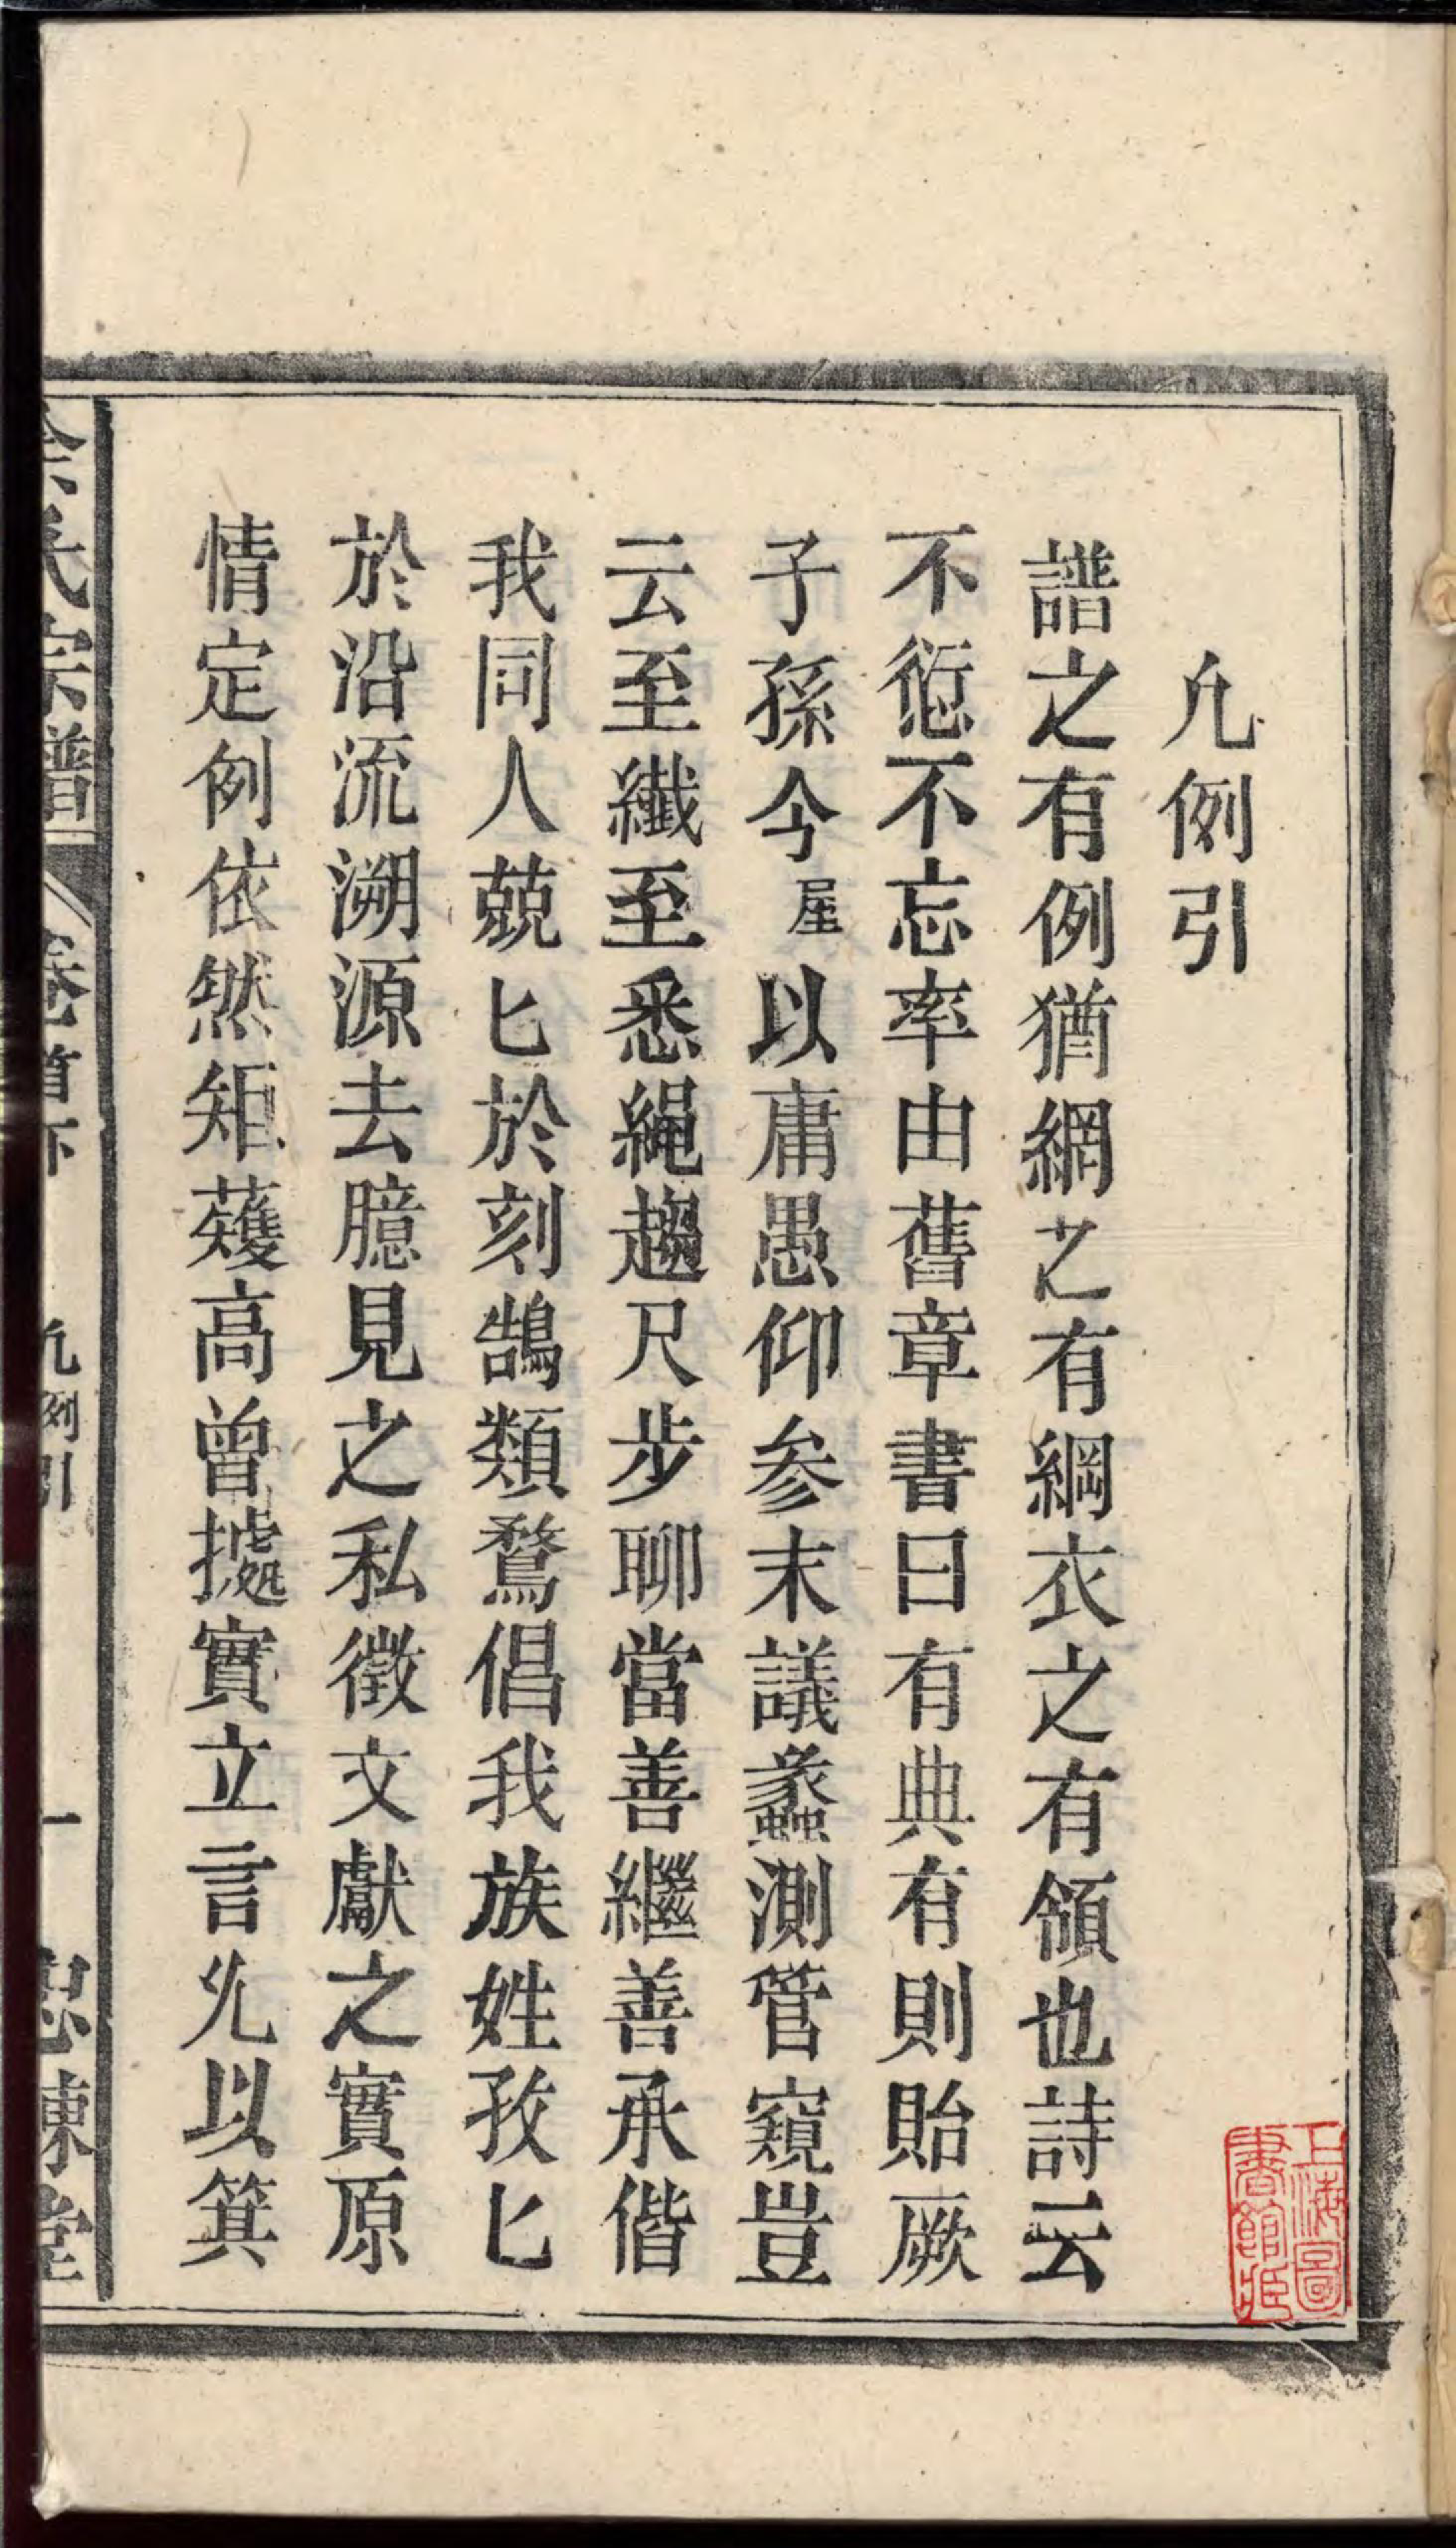 凢例引
譜之有例猶網之有綱衣之有領也詩云
不愆不忘率由舊章書曰有典有則貽厥
子孫今屋以庸愚仰参末議蠡測管窺豈
云至纖至悉繩趨尺步聊當善繼善承偕
我同人兢匕於刻鵠類鶩倡我族姓孜匕
於沿流溯源去臆見之私徵文獻之實原
情定例依然矩蒦高曾據實立言允以箕
氏宗譜 卷首下 凢例引 一 思棟堂
上海圖書館藏